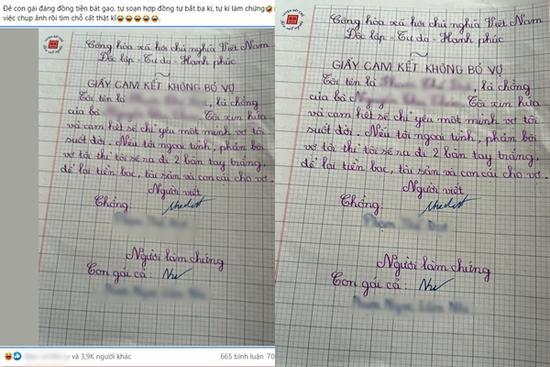 Đẻ con gái đáng đồng tiền bát gạo, tự soạn hợp đồng tự bắt ba kí, tự kí làm chứng
việc chụp ảnh rồi tìm chỗ cất thật kĩ
Cộng hòa xã hội chủ nghĩa Việt Nam
Độc lập - Tự do - Hạnh phúc
GIẤY CAM KẾT KHÔNG BỎ VỢ
Tôi tên là , là chồng
của bà Tôi xin hứa
và cam kết sẽ chỉ yêu một mình vợ tôi
suốt đời. Nếu tôi ngoại tình, phản bội
vợ tôi thì tôi sẽ ra đi 2 bàn tay trắng.
để lại tiền bạc, tài sản và con cái cho vợ.
Người viết
Chồng:
Người làm chứng
Con gái cả: Như
và 3,9K người khác
665 bình luận 70
Cộng hòa xã hội chủ nghĩa Việt Nam
Độc lập - Tự do - Hạnh phúc
GIẤY CAM KẾT KHÔNG BỎ VỢ
Tôi tên là , là chồng
của bà Tôi xin hứa
và cam kết sẽ chỉ yêu một mình vợ tôi
suốt đời. Nếu tôi ngoại tình, phản bội
vợ tôi thì tôi sẽ ra đi 2 bàn tay trắng.
để lại tiền bạc, tài sản và con cái cho vợ.
Người viết
Chồng:
Người làm chứng
Con gái cả: Như